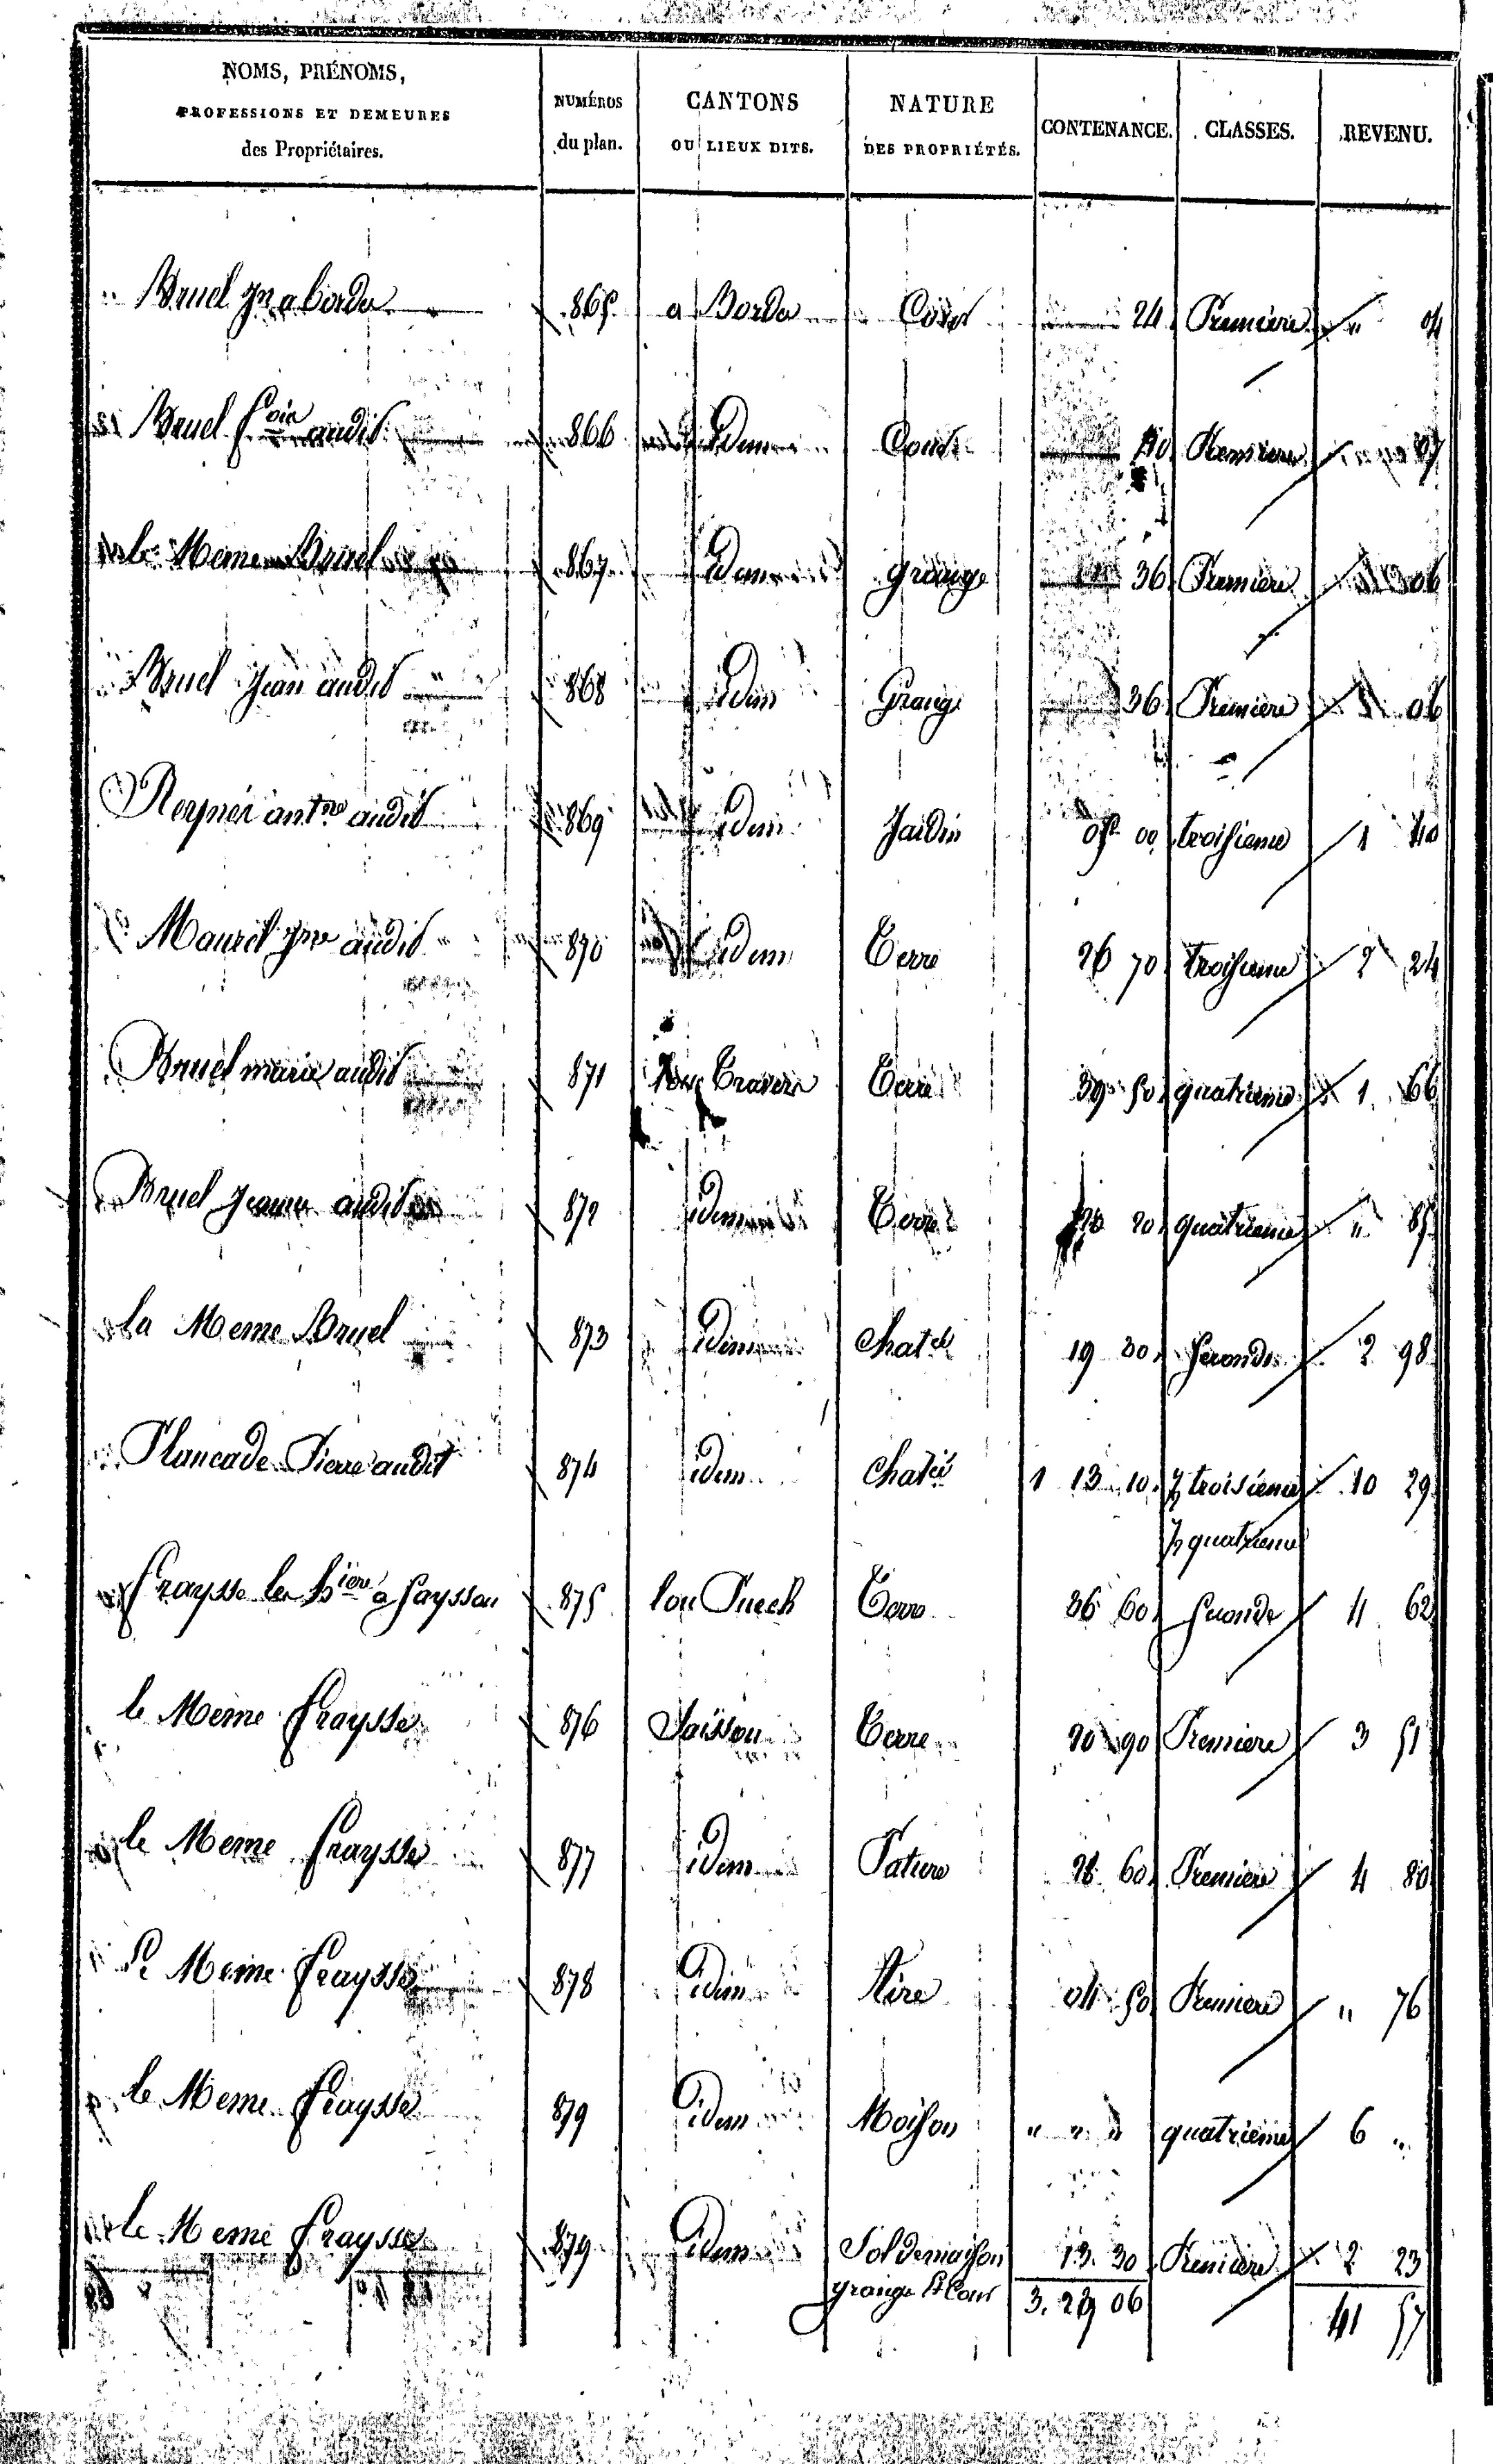 NOMS, PRÉNOMS, PROFESSIONS ET DEMEURES des Propriétaires. NUMÉROS du plan. CANTONS OU LIEUX DITS. NATURE DES PROPRIÉTÉS. CONTENANCE. CLASSES. REVENU.
Bruel Jn a borda 865 a Borda Cour 24 Premiere " 04
Bruel fois audit 866 Idem Cour 40 Premiere 07
le Meme Bruel 867 Idem grange 36 Premiere 06
Bruel Jean audit 868 idem Grange 36 Premiere 06
antne audit 869 idem Jardin 05 00 troisieme 1 40
Maurel audit 870 idem Terre 26 70 troisieme 2 24
Bruel marie audit 871 Travers Terre 39 50 quatrieme 1 66
Bruel Jeanne audit 872 idem Terre 20 20 quatrieme " 85
la Meme Bruel 873 Idem Chat 19 80 seconde 2 98
Plancade Pierre audit 874 idem Chat 1 13 10 ½ troisième 10 29
½ quatrieme
Fraysse a Sayssou 875 lou Puech Terre 36 60 seconde 4 62
le Meme fraysse 876 Saïssou Terre 20 90 Premiere 3 51
le Meme fraysse 877 idem Pature 28 60 Premiere 4 80
le Meme fraysse 878 idem Aire 04 50 Premiere " 76
le Meme fraysse 879 idem Maison " " " quatrieme 6 "
le Meme fraysse 879 idem Sol de maison 13 30 Premiere 2 23
grange & Cour 3. 29 06 41 57